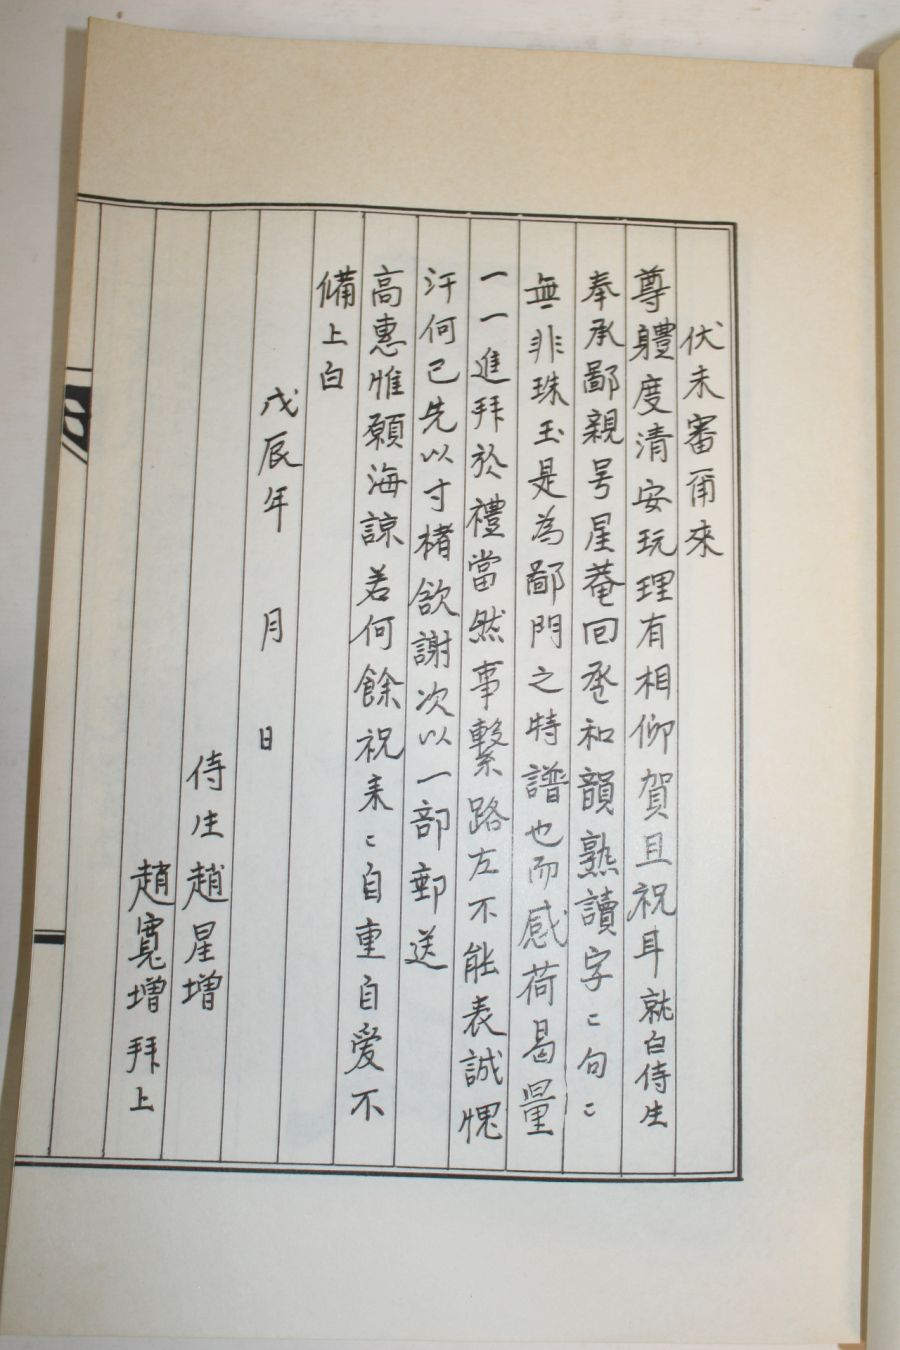 伏未審甭來
尊體度清安玩理有相仰賀且祝耳就白侍生
奉承鄙親号星菴回卺和韻熟讀字〻句〻
無非珠玉是為鄙門之特譜也而感荷曷量
一一進拜於禮當然事繫路左不能表誠愧
汗何已先以寸楮欲謝次以一部郵送
高惠惟願海諒若何餘祝耒〻自重自愛不
備上白
戊辰年 月 日
侍生趙星增
趙寬增拜上